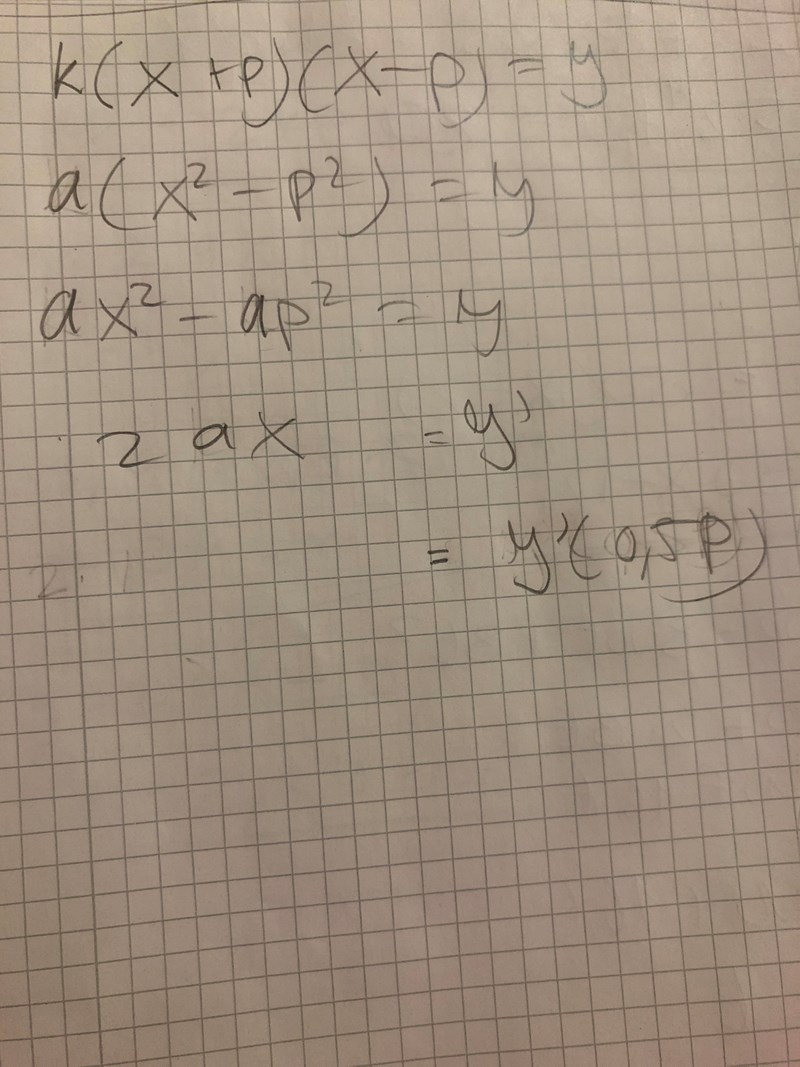 k(x+p)(x-p) = y
a(x² - p²) = y
ax² - ap² = y
2ax = y'
= y'(0,5p)